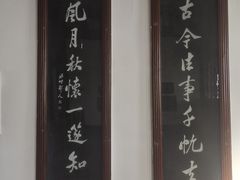 古今往事千帆去
風月秋懷一篴知